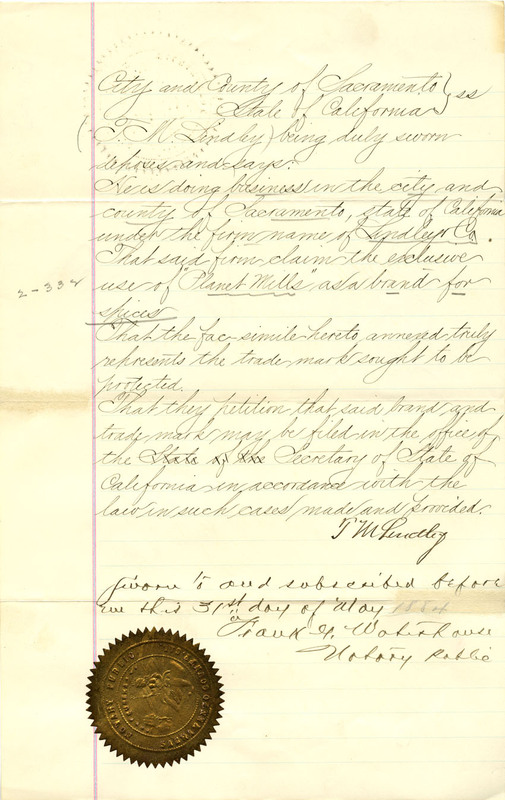 City and County of Sacramento } ss
State of California
(T. M. Lindley) being duly sworn
deposes and says:
He is doing business in the city and
county of Sacramento, state of California
under the firm name of Lindley & Co.
That said firm claim the exclusive
use of "Planet Mills" as a brand for
2-332
spices
That the fac-simile hereto, annexed truly
represents the trade mark sought to be
protected.
That they petition that said brand and
trade mark may be filed in the office of
the State of the Secretary of State of
California in accordance with the
law in such cases made and provided.
T M Lindley
Sworn to and subscribed before
me this 31st day of May 1884
Frank G. Waterhouse
Notary Public